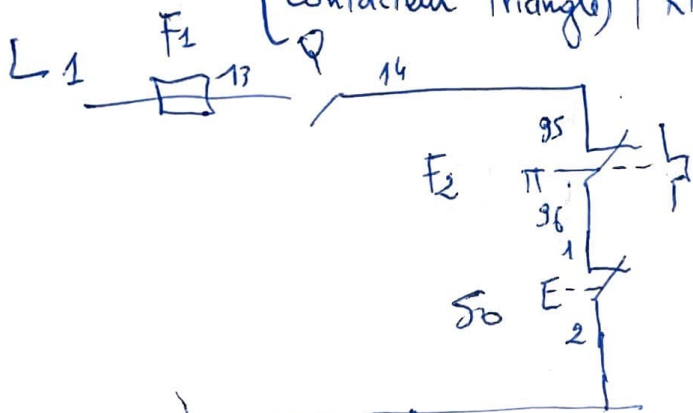 contacteur Triangle)
F1
Q
L1
13
14
95
F2
96
1
S0
E
2